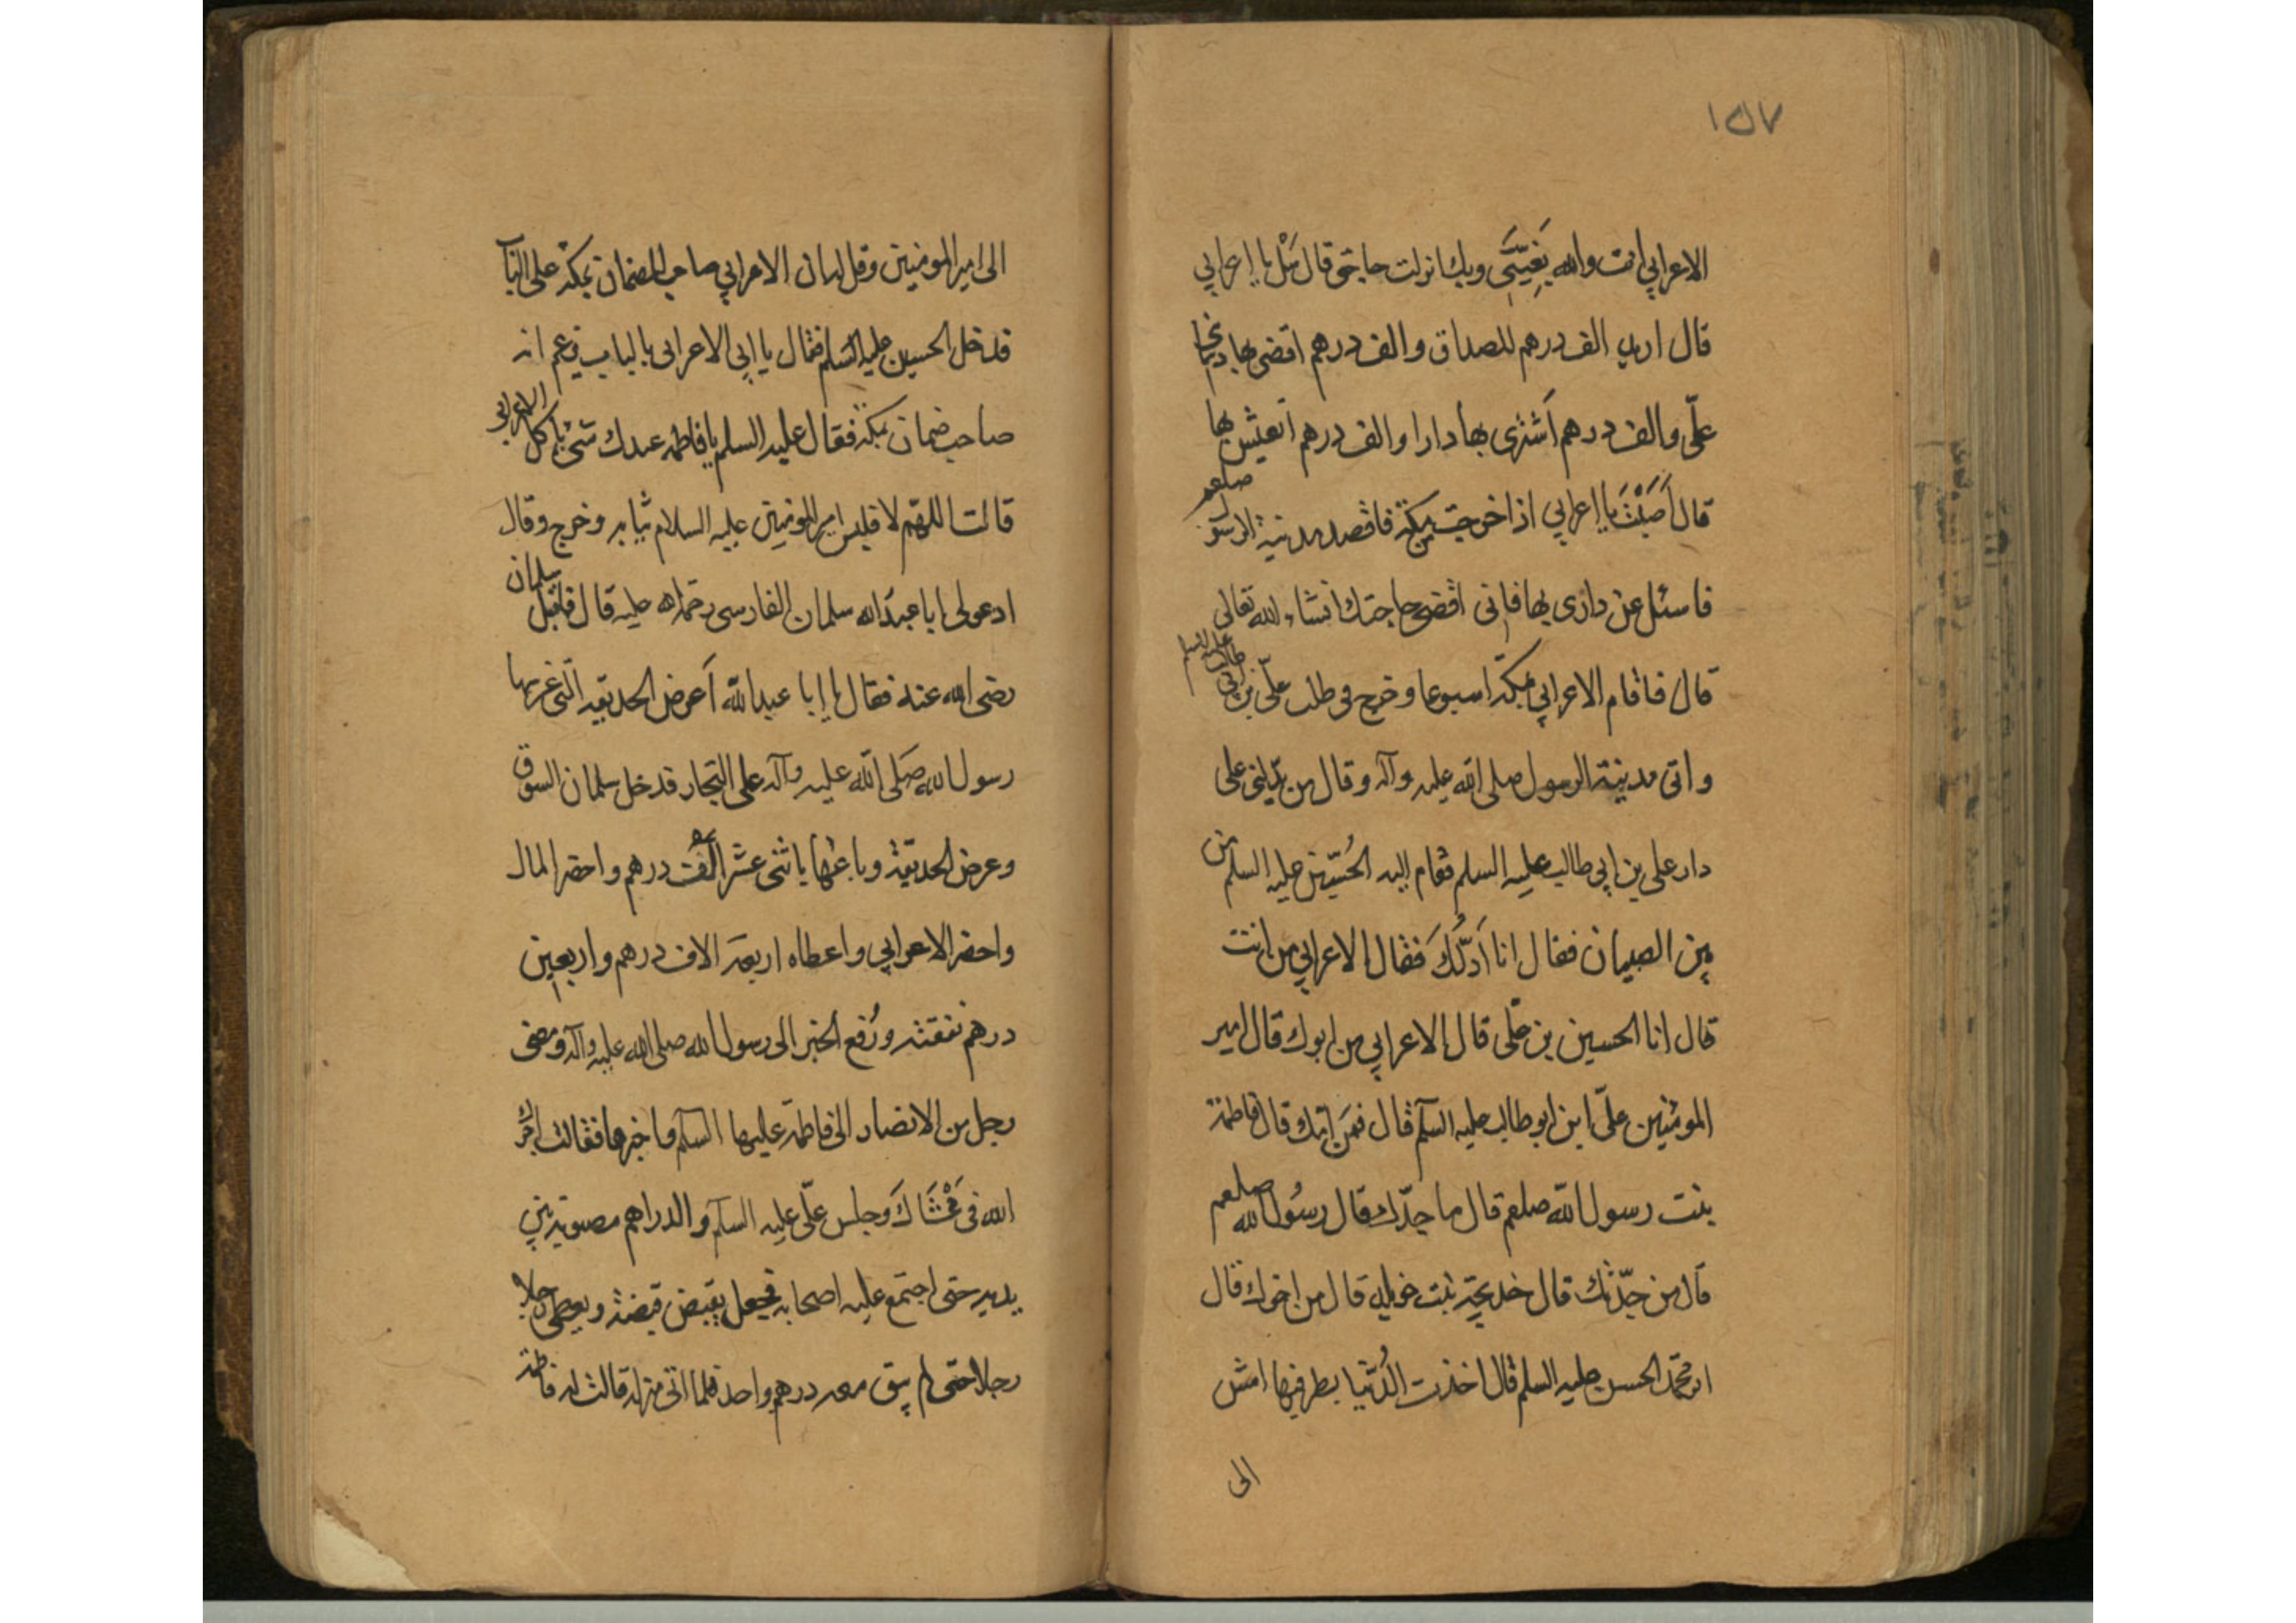 ١٥٧
الاعرابي انت والله بغيتي وبك انزلت حاجتي قال سَلْ يا اعرابي
قال اريد الف درهم للصداق والف درهم اقضى بها ديناً
علىّ والف درهم اَشترى بها دارا والف درهم اتعيّش بها
قال اَصَبْتَ يا اعرابي اذا خرجت من مكة فاقصد مدينة الرسول صلعم
فاسئل عن دارى بها فانى اقضى حاجتك انشاء الله تعالى
قال فاقام الاعرابي بمكّة اسبوعا وخرج فى طلب علىّ بن ابي طالب عليه السلم
واتى مدينة الرسول صلى الله عليه وآله وقال من يدلّنى على
دار على بن ابي طالب عليه السلم فقام اليه الحُسَين عليه السلم من
بين الصبيان فقال انا اَدُلّكَ فقال الاعرابي من انت
قال انا الحسين بن علّى قال الاعرابي من ابوك قال امير
المومنين علىّ ابن ابو طالب عليه السلم قال فمَن امّك قال فاطمة
بنت رسول الله صلعم قال ما جدّك قال رسُول الله صلعم
قال من جدّتك قال خديجة بنت خويلد قال من اخوك قال
ابو محمّد الحسن عليه السلم قال اخذت الدُنيا بطرفيها امش
الى
الى امير المومنين وقل له ان الاعرابي صاحب الضمان بمكة على الباب
فدخل الحسين عليه السلم فقال يا ابي الاعرابى بالباب يزعم انه
صاحب ضمان بمكة فقال عليه السلم يا فاطمه عندك شئ يأكل الاعرابي
قالت اللهم لا فلبس امير المومنين عليه السلام ثيابه وخرج وقال
ادعولى ابا عبد الله سلمان الفارسى رحمة الله عليه قال فاقبل سلمان
رضى الله عنه فقال يا ابا عبد الله اَعرض الحديقه التى غرسها
رسول الله صلى الله عليه وآله على التجار فدخل سلمان السوق
وعرض الحديقة وباعها باثنى عشر الف درهم واحضر المال
واحضر الاعرابي واعطاه اربعة الاف درهم واربعين
درهم نفقته ورُفع الخبر الى رسول الله صلى الله عليه وآله ومضى
رجل من الانصار الى فاطمة عليها السلم فاخبرها فقالت اجرك
الله فى مَمْشَاكَ وجلس علّى عليه السلم والدراهم مصبوبة بين
يديه حتى اجتمع عليه اصحابه فجعل يقبض قبضة ويعطى رجلا
رجلا حتى لم يبق معه درهم واحد فلما اتى منزله قالت له فاطمة